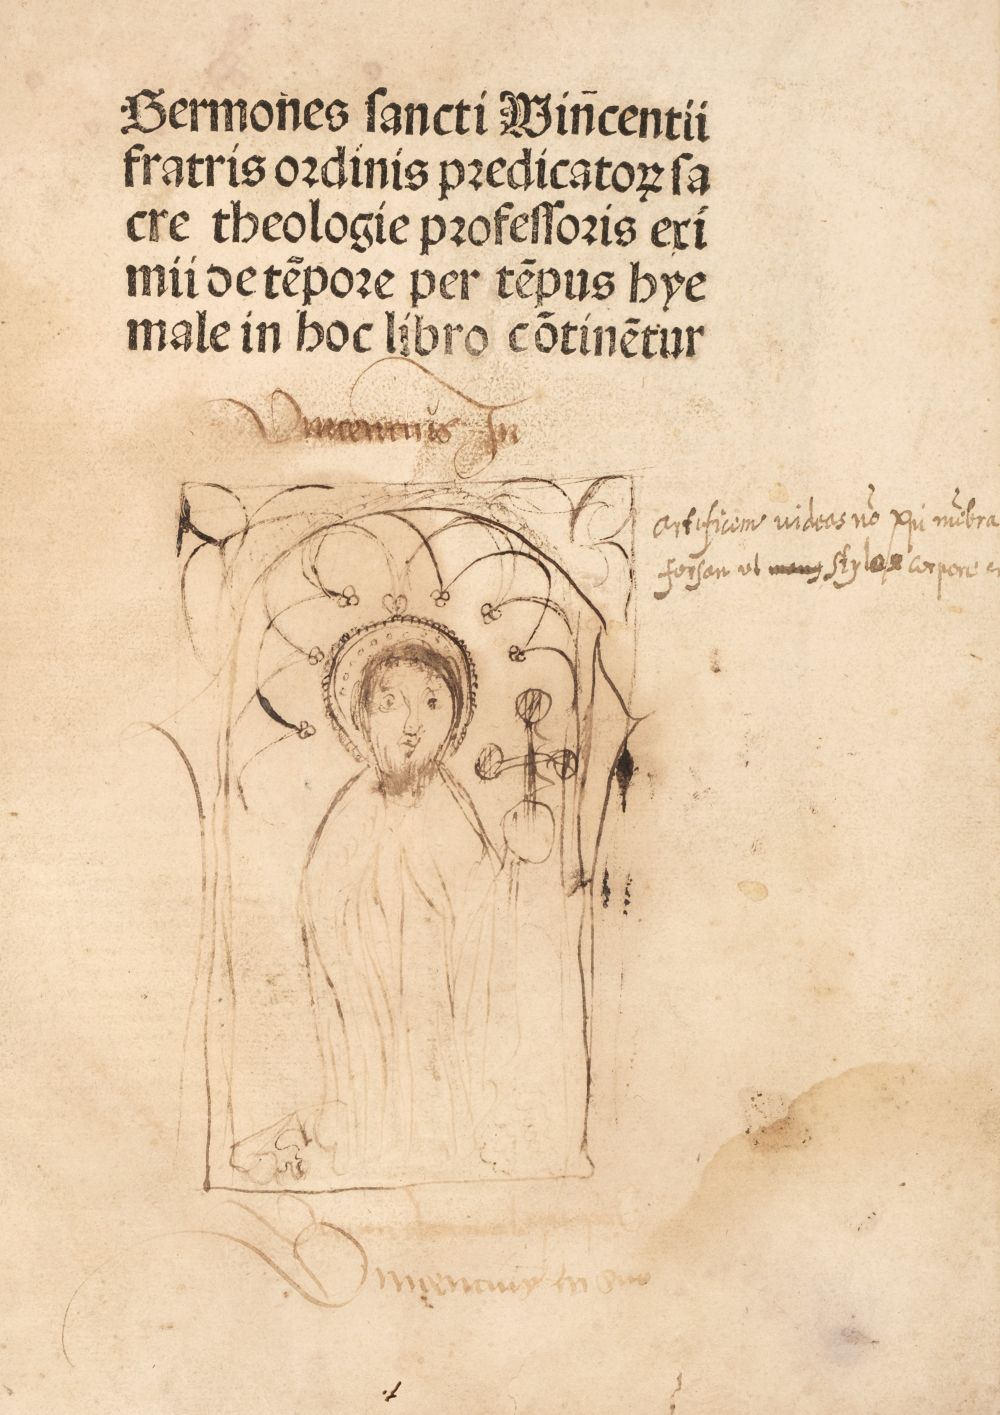 Sermones sancti Vin̄centii
fratris ordinis predicatoꝝ sa
cre theologie professoris exi
mii de tēpore per tēpus hye
male in hoc libro cōtinētur
Vincentius In
artificem videas nō
forsan ut corpore
Vincentius in suo